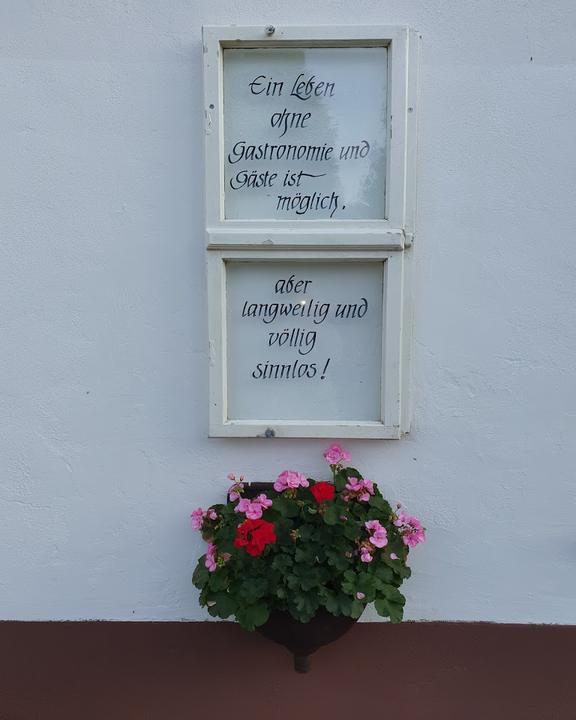 Ein Leben
ohne
Gastronomie und
Gäste ist
möglich.
aber
langweilig und
völlig
sinnlos!